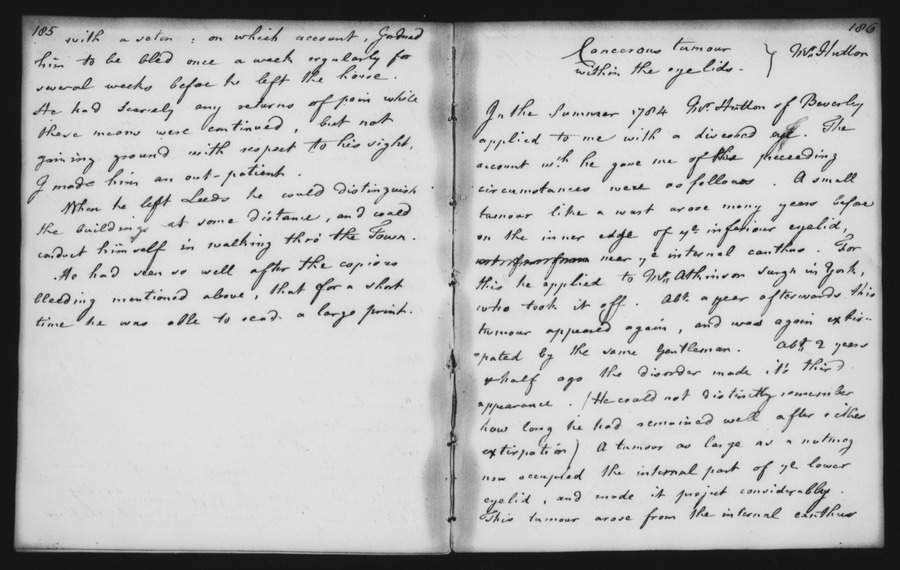 185
with a seton : on which account, I ordered
him to be bled once a week regularly for
several weeks before he left the house.
He had scarcely any returns of pain while
these means were continued, but not
gaining ground with respect to his sight,
I made him an out-patient.
When he left Leeds he could distinguish
the buildings at some distance, and could
conduct himself in walking thro' the Town.
He had seen so well after the copious
bleeding mentioned above, that for a short
time he was able to read a large print.
186
Cancerous tumour } Mr. Hutton
within the eye lids.
In the Summer 1784 Mr. Hutton of Beverley
applied to me with a diseased eye. The
account wch he gave me of the preceeding
circumstances were as follows. A small
tumour like a wart arose many years before
on the inner edge of ye inferiour eyelid,
near ye internal canthus. For
this he applied to Mr. Atkinson Surgn in York,
who took it off. Abt. a year afterwards this
tumour appeared again, and was again extir-
pated by the same Gentleman. Abt. 2 years
& half ago the disorder made it's third
appearance. (He could not distinctly remember
how long he had remained well after either
extirpation) A tumour as large as a nutmeg
now occupied the internal part of ye lower
eyelid, and made it project considerably.
This tumour arose from the internal canthus